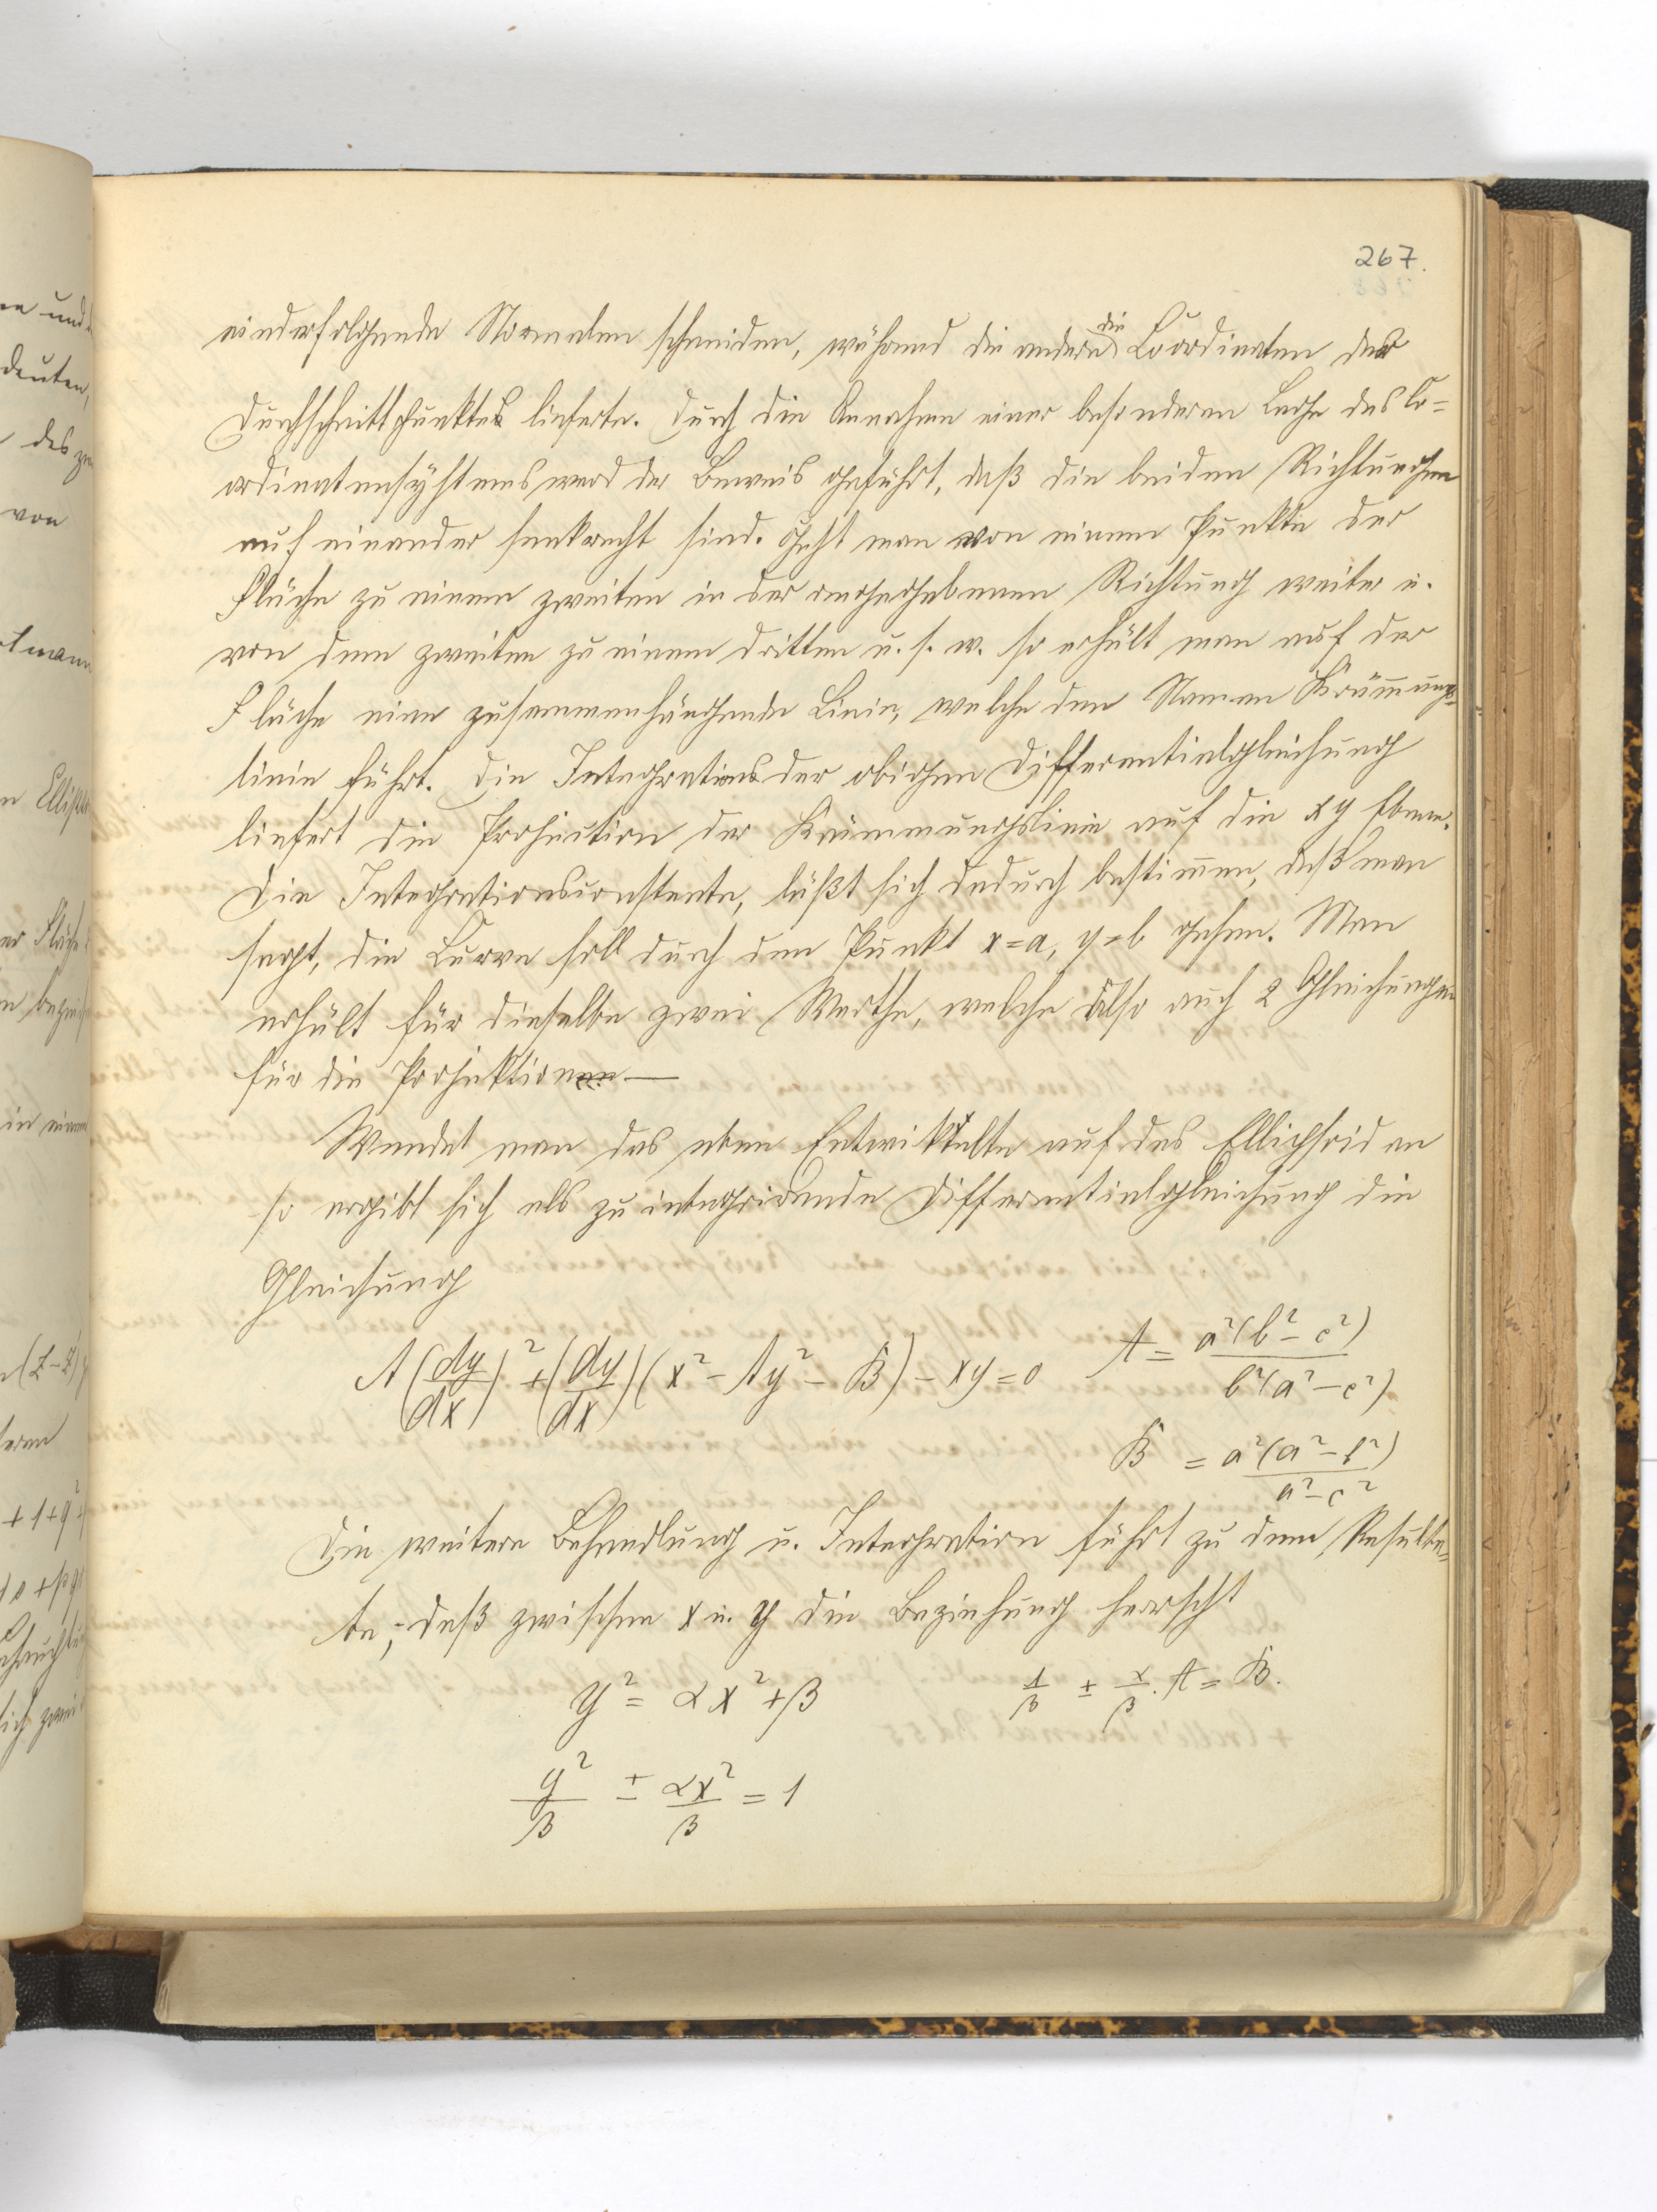 267.
einderfolgende Normalen schneiden, während die andere die Coordinaten des
Durchschnittspunktes lieferte. Durch die Annahme einer besonderen Lage des Co=
ordinatensystems ward der Beweis geführt, daß die beiden Richtungen
auf einander senkrecht sind. Geht man von einem Punkte der
Fläche zu einem zweiten in der angegebenen Richtung weiter u.
von dem zweiten zu einem dritten u. s. w. so erhält man auf der
Fläche eine zusammenhängende Linie, welche den Namen Krümmungs=
linie führt. Die Integration der obigen Differentialgleichung
liefert die Projection der Krümmungslinie auf die xy Ebene.
Die Integrationsconstante, läßt sich dadurch bestimmen, daß man
sagt, die Curve soll durch den Punkt x=a, y=b gehen. Man
erhält für dieselbe zwei Werthe, welche also auch 2 Gleichungen
für die Projektion —
Wendet man das eben Entwickelte auf das Ellipsoid an
so ergibt sich als zu integrirende Differentialgleichung die
Gleichung
A(dy/dx)² + (dy/dx)(x² − Ay² − B) − xy = 0   A = a²(b² − c²)/b²(a² − c²)
B = a²(a² − b²)/a² − c²
Die weitere Behandlung u. Integration führt zu dem Resulta=
te, daß zwischen x u. y die Beziehung herrscht
y² = αx² + β   1/β ± α/β . A = B.
y²/β ± αx²/β = 1